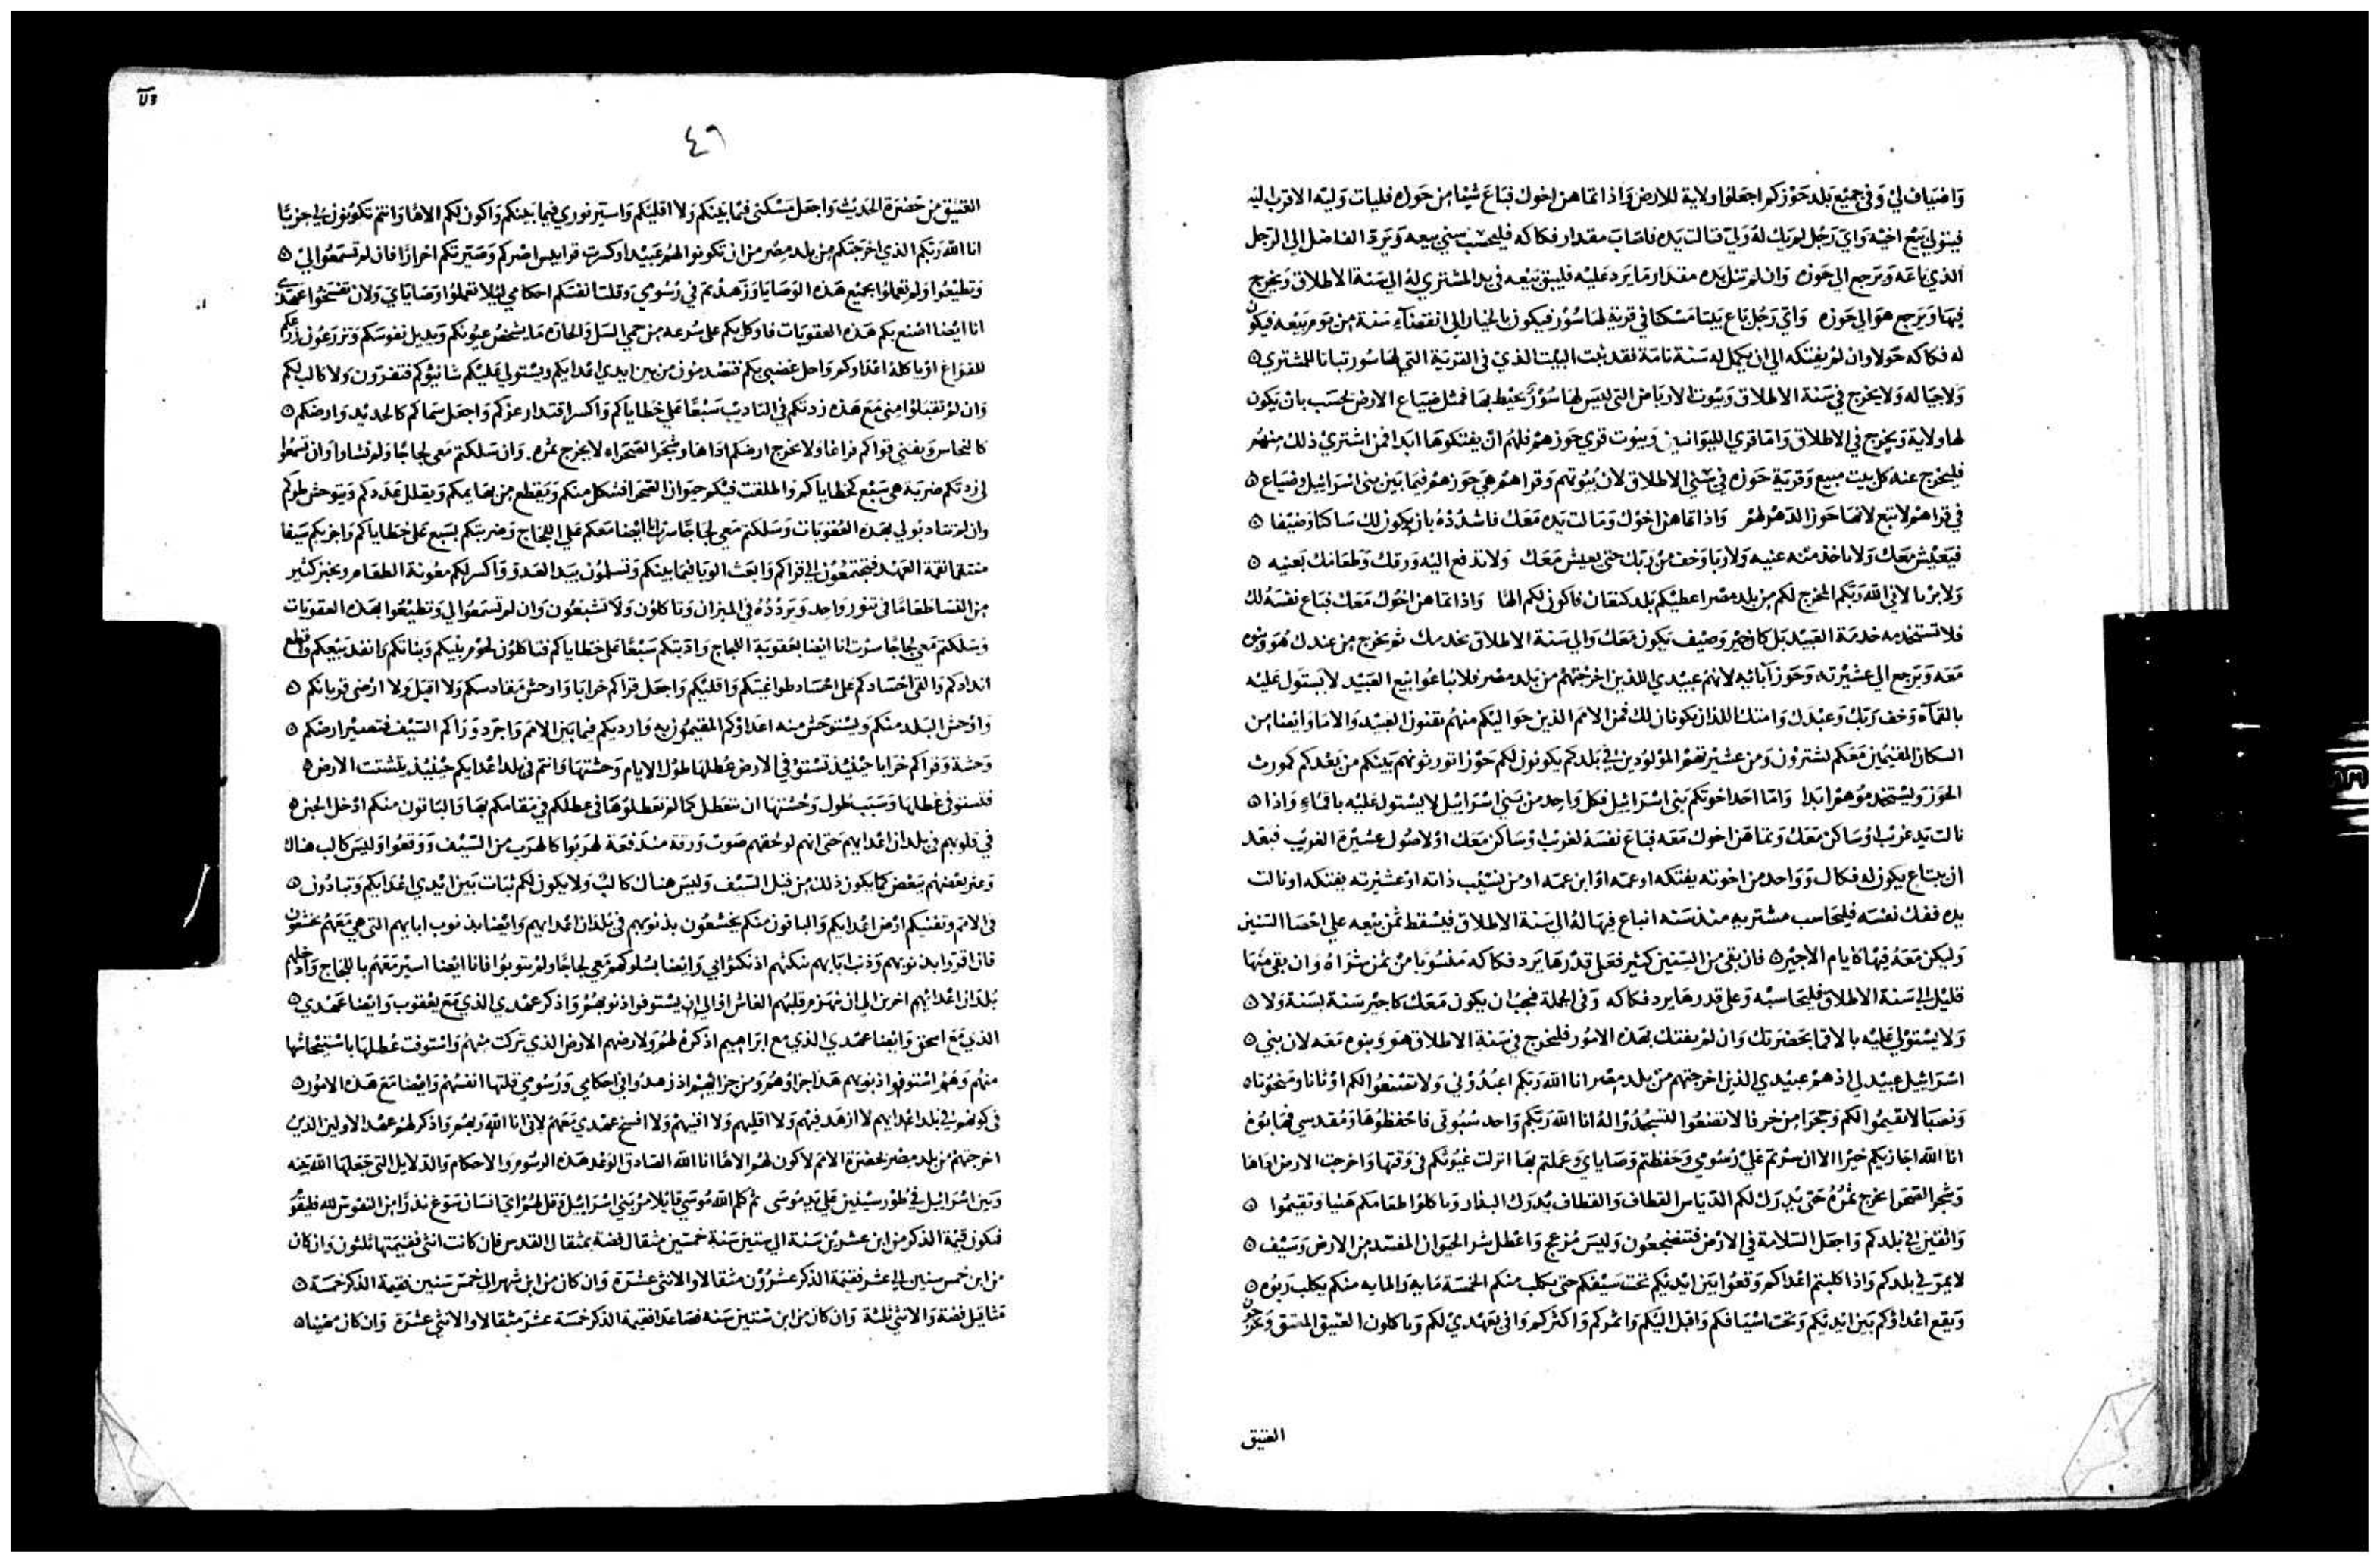 واضياف لي وفي جميع بلد حوزكم اجعلوا ولاية للارض واذا تماهن اخوك فباع شيئا من حوزه فليات وليه الاقرب اليه
فيتولي بيع اخيه واي رجل لم يك له ولي فنالت يده فاصاب مقدار فكاكه فليحسب سني بيعه ويرد الفاضل الي الرجل
الذي باعه ويرجع الي حوزه وان لم تنل يده مقدار ما يرد عليه فليبق بيعه في يد المشتري له الي سنة الاطلاق ويخرج
فيها ويرجع هو الي حوزه واي رجل باع بيتا مسكنا في قرية لها سور فيكون بالخيار الي انقضاء سنة من يوم بيعه فيكون
له فكاكه حولا وان لم يفتكه الي ان يكمل له سنة تامة فقد ثبت البيت الذي في القرية التي لها سور تباتا للمشتري
ولاجياله ولا يخرج في سنة الاطلاق وبيوت الارباض التي ليس لها سور يحيط بها فمثل ضياع الارض تحسب بان يكون
لها ولاية ويخرج في الاطلاق واما قري الليوانيين وبيوت قري حوزهم فلهم ان يفتكوها ابدا فمن اشتري ذلك منهم
فليخرج عنه كل بيت مبيع وقرية حوزه في سني الاطلاق لان بيوتهم وقراهم هي حوزهم فيما بين بني اسرائيل وضياع
في قراهم لا تبع لانها حوز الدهر لهم واذا تماهن اخوك ومالت يده معك فاشدده بان يكون لك ساكنا وضيفا
فيعيش معك ولا تاخذ منه عنيه ولا ربا وخف من ربك حتي يعيش معك ولا تدفع اليه ورقك وطعامك بعنيه
ولا بربا لاني الله ربكم المخرج لكم من بلد مصر اعطيكم بلد كنعان فاكون لكم الها واذا تماهن اخوك معك فباع نفسه لك
فلا تستخدمه خدمة العبيد بل كاجير وضيف يكون معك والي سنة الاطلاق يخدمك ثم يخرج من عندك هو وبنوه
معه ويرجع الي عشيرته وحوز آبائه لانهم عبيدي الذين اخرجتهم من بلد مصر فلا تباعوا بيع العبيد لا يستول عليه
وخف ربك وعبدك وامتك اللذان يكونان لك فمن الامم الذين حواليكم منهم تقنون العبيد والاما وايضا من
السكان المقيمين معكم تشترون ومن عشيرتهم المولودين في بلدكم يكونون لكم حوزا تورثونهم بينكم من بعدكم كمورث
الحوز ويستخدموهم ابدا واما احد اخوتكم بني اسرائيل فكل واحد من بني اسرائيل لا يستول عليه واذا
نالت يد غريب او ساكن معك وتماهن اخوك معه فباع نفسه لغريب او ساكن معك او لاصول عشيرة الغريب فبعد
ان يبتاع يكون له فكاك وواحد من اخوته يفتكه او عمه او ابن عمه او من نسيب ذاته او عشيرته يفتكه او نالت
يده ففك نفسه فليحاسب مشتريه منذ سنه انباع فيها له الي سنة الاطلاق فيسقط ثمن بيعه علي احصا السنين
وليكن معه فيها كايام الاجير فان بقي من السنين كثير فعلى قدرها يرد فكاكه منسوبا من ثمن شراه وان بقي منها
قليل الي سنة الاطلاق فليحاسبه وعلي قدرها يرد فكاكه وفي الجملة فيجب ان يكون معك كاجير سنة بسنة ولا
ولا يستولي عليه بحضرتك وان لم يفتك بهذه الامور فليخرج في سنة الاطلاق هو وبنوه معه لان بني
اسرائيل عبيد لي اذ هم عبيدي الذين اخرجتهم من بلد مصر انا الله ربكم اعبدوني ولا تصنعوا لكم اوثانا ومنحوتا
ونصبا لا تقيموا لكم وحجرا من خرفا لا تضعوا لتسجدوا له انا الله ربكم واحد سبوتي فاحفظوها ومقدسي فهابوه
انا الله اجازيكم خيرا الا ان سرتم علي رسومي وحفظتم وصاياي وعملتم بها انزلت غيوثكم في وقتها واخرجت الارض اداها
وشجر الصحرا يخرج ثمره حتي يدرك لكم الدياس القطاف والقطاف يدرك البذار وتاكلوا طعامكم هنيا وتقيموا
واثقين في بلدكم واجعل السلامة في الارض فتضجعون وليس مزعج واعطل شر الحيوان المفسد من الارض وسيف
لا يمر في بلدكم واذا كلبتم اعداكم وقعوا بين ايديكم تحت سيفكم حتي يكلب منكم الخمسة مايه والمايه منكم يكلب ربوه
ويقع اعداوكم بين ايديكم وتحت اسيافكم واقبل اليكم واثمركم واكثركم وافي بعهدي لكم وتاكلون العتيق المعتق وتخرجون
العتيق
٤٦
العتيق من حضرة الحديث واجعل مسكني فيما بينكم ولا اقليكم واسير نوري فيما بينكم واكون لكم الاها وانتم تكونون لي حزبا
انا الله ربكم الذي اخرجتكم من بلد مصر من ان تكونوا لهم عبيدا وكسرت قرابيس اصركم وصيرتكم احرارا فان لم تسمعوا لي
وتطيعوا ولم تعملوا بجميع هذه الوصايا وزهدتم في رسومي وقلت انفسكم احكامي ليلا تعملوا وصاياي ولان تفسخوا عهدي
انا ايضا اصنع بكم هذه العقوبات فاوكل بكم علي سرعه من حمي السل والحاره ما يشخص عيونكم ويذيل نفوسكم وتزرعون زرعكم
للفراغ او ياكله اعداوكم واحل غضبي بكم فتصدمون من بين ايدي اعدايكم ويستولي عليكم شانيوكم فتفرون ولا كالب لكم
وان لم تقبلوا مني مع هذه زدتكم في التاديب سبعا علي خطاياكم واكسر اقتدار عزكم واجعل سماكم كالحديد وارضكم
كالنحاس ويفني قواكم فراغا ولا يخرج ارضكم اداها وشجر الصحراء لا يخرج ثمره. وان سلكتم معي لجاجا ولم تشاوا وان تسمعوا
لي زدتكم ضربة هي سبع كخطاياكم واطلقت فيكم حيوان الصحرا فتثكل منكم ويقطع من بهايمكم ويقلل عددكم ويتوحش طرقكم
وان لم تتادبوا لي بهذه العقوبات وسلكتم معي لجاجا سرت انا ايضا معكم علي اللجاج وضربتكم بسبع علي خطاياكم واجريكم سيفا
منتقما نقمة العهد فتجتمعون الي قراكم وابعث الوبا فيما بينكم وتسلمون بيد العدو واكسر لكم معونة الطعام ويخبز كثير
من النسا طعاما في تنور واحد ويردده في الميزان وتاكلون ولا تشبعون وان لم تسمعوا لي وتطيعوا بهذه العقوبات
وسلكتم معي لجاجا سرت انا ايضا بعقوبة اللجاج وادبتكم سبعا علي خطاياكم فتاكلون لحوم بنيكم وبناتكم وانفد بيعكم واقطع
اندادكم والقي اجسادكم علي اجساد طواغيتكم واقليكم واجعل قراكم خرابا واوحش مقادسكم ولا اقبل ولا ارضي قربانكم
واوحش البلد منكم ويستوحش منه اعداوكم المقيمون به وارديكم فيما بين الامم واجرد وراكم السيف فتصير ارضكم
وحشة وقراكم خرابا حينيذ تستوفي الارض عطلها طول الايام وحشتها وانتم في بلد اعدايكم حينيذ يلتشتت الارض
فتستوفي عطلها وسبب طول وحشتها ان تتعطل كما لم تعطلوها في عطلكم في مقامكم بها والباقون منكم ادخل الجبن
في قلوبهم في بلدان اعدايهم حتي انهم لو لحقهم صوت ورقة مندفعة لهربوا كالهرب من السيف ووقعوا وليس كالب هناك
وعثر بعضهم ببعض كما يكون ذلك من قبل السيف وليس هناك كالب ولا يكون لكم ثبات بين ايدي اعدايكم وتبادون
في الامم وتفنيكم ارض اعدايكم والباقون منكم يخشعون بذنوبهم في بلدان اعدايهم وايضا بذنوب ابايهم التي هي معهم يخشعون
فان اقروا بذنوبهم وذنب ابايهم بنكثهم اذ نكثوا بي وايضا بسلوكهم معي لجاجا ولم يتوبوا فانا ايضا اسير معهم باللجاج وادخلهم
بلدان اعدايهم اخر بن الي ان ينهزم قلبهم الغاش او الي ان يستوفوا ذنوبهم واذكر عهدي الذي مع يعقوب وايضا عهدي
الذي مع اسحق وايضا عهدي الذي مع ابراهيم اذكره لهم ولارضهم الارض الذي تركت منهم واستوفت عطلها باستيحاشها
منهم وهم استوفوا ذنوبهم هذا جزاوهم ومن جزايهم اذ زهدوا في احكامي ورسومي قلتها انفسهم وايضا مع هذه الامور
في كونهم في بلد اعدايهم لا ازهد فيهم ولا اقليهم ولا افنيهم ولا افسخ عهدي معهم لاني انا الله ربهم واذكر لهم عهد الاولين الذين
اخرجتهم من بلد مصر بحضرة الامم لاكون لهم الاها انا الله الصادق الوعد هذه الرسوم والاحكام والدلايل التي جعلها الله بينه
وبين اسرائيل في طور سينين علي يد موسي ثم كلم الله موسي قايلا مر بني اسرائيل وقل لهم اي انسان سوغ نذرا من النفوس لله فليقو
فتكون قيمة الذكر من ابن عشرين سنة الي ستين سنة خمسين مثقال فضة بمثقال القدس فان كانت انثي فقيمتها ثلثون وان كان
من ابن خمس سنين الي عشر فقيمة الذكر عشرون مثقالا والانثي عشرة وان كان من ابن شهر الي خمس سنين فقيمة الذكر خمسة
مثاقيل فضة والانثي ثلثة وان كان من ابن ستين سنه فصاعدا فقيمة الذكر خمسة عشر مثقالا والانثي عشرة وان كان مهينا